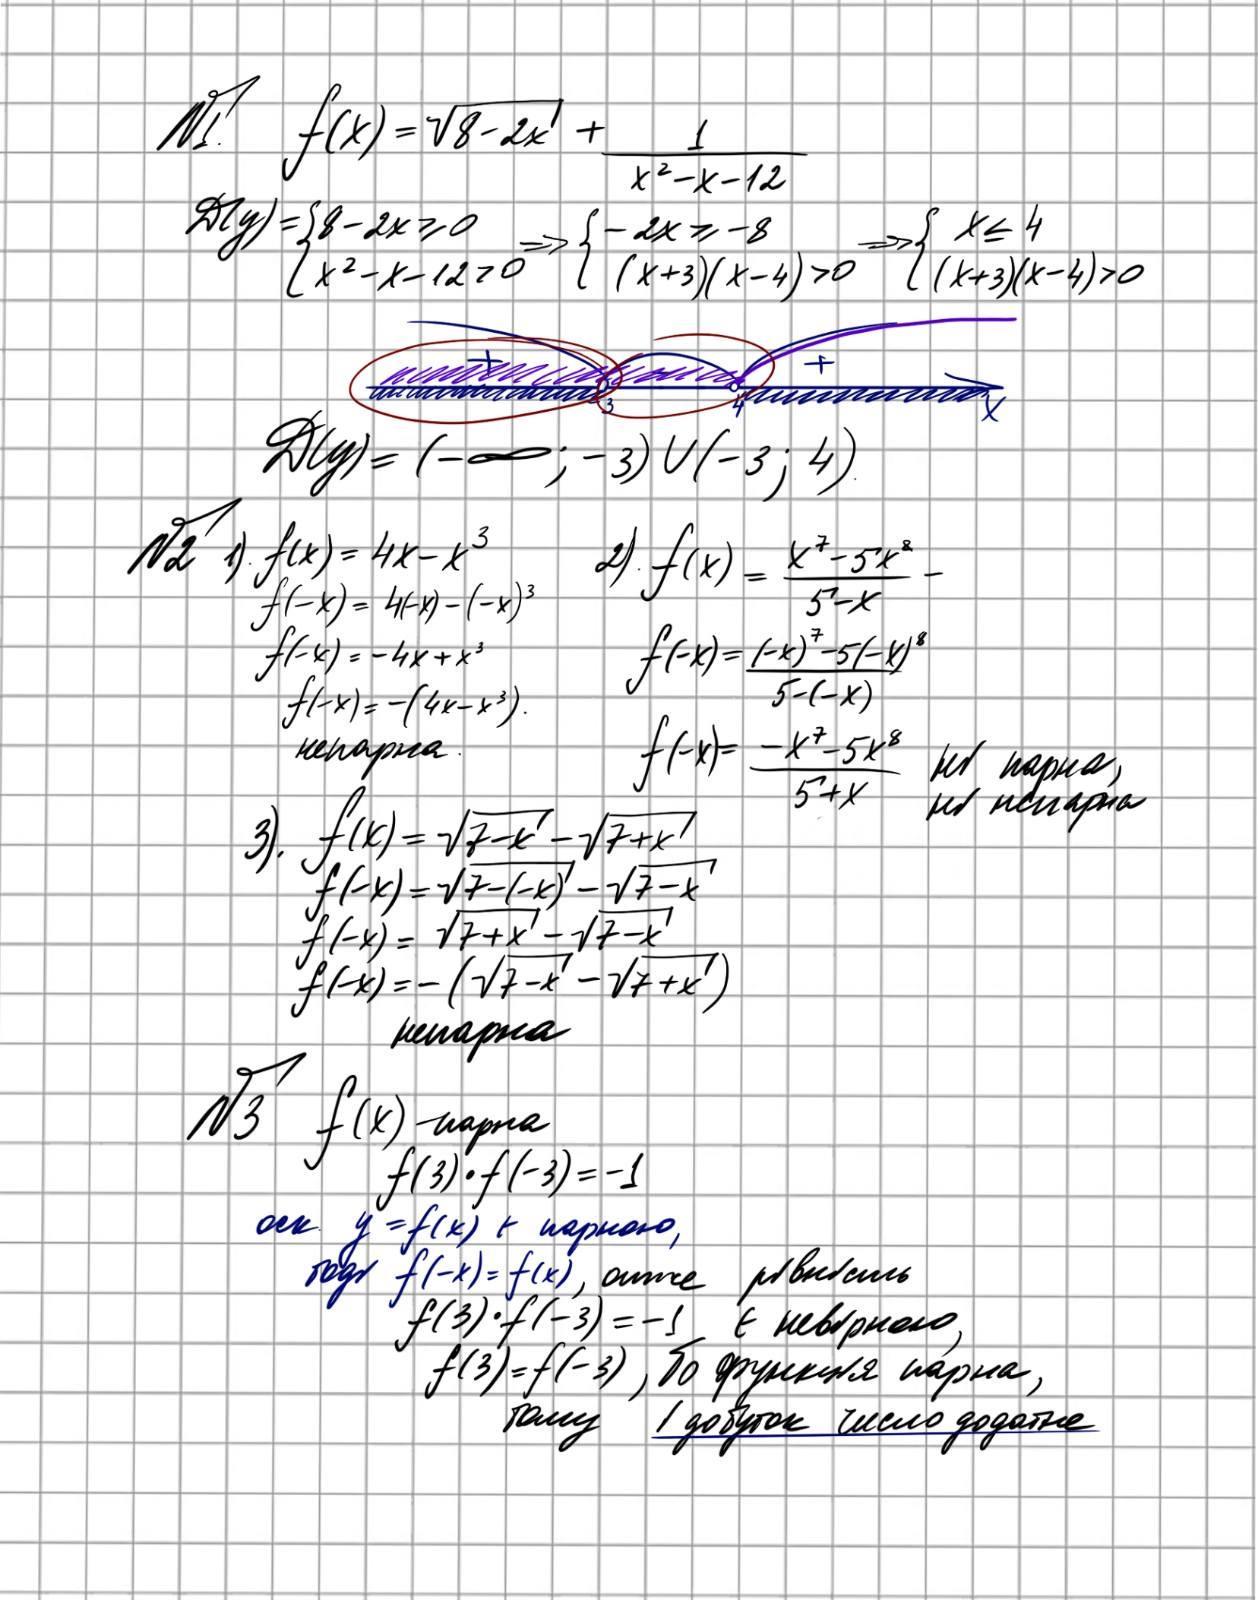 №1. f(x) = √(8-2x) + 1/(x²-x-12)
D(y) = { 8-2x ≥ 0 ; x²-x-12 > 0 => { -2x ≥ -8 ; (x+3)(x-4) > 0 => { x ≤ 4 ; (x+3)(x-4) > 0
+ +
3 4 x
D(y) = (-∞; -3) ∪ (-3; 4).
№2 1). f(x) = 4x - x³
f(-x) = 4(-x) - (-x)³
f(-x) = -4x + x³
f(-x) = -(4x - x³).
непарна.
2). f(x) = (x⁷ - 5x⁸)/(5-x) -
f(-x) = ((-x)⁷ - 5(-x)⁸)/(5-(-x))
f(-x) = (-x⁷ - 5x⁸)/(5+x) ні парна,
ні непарна
3). f(x) = √(7-x) - √(7+x)
f(-x) = √(7-(-x)) - √(7-x)
f(-x) = √(7+x) - √(7-x)
f(-x) = -(√(7-x) - √(7+x))
непарна
№3 f(x) - парна
f(3)·f(-3) = -1
оск. y = f(x) є парною,
тоді f(-x) = f(x), отже рівність
f(3)·f(-3) = -1 є невірною,
f(3) = f(-3), бо функція парна,
тому і добуток число додатне